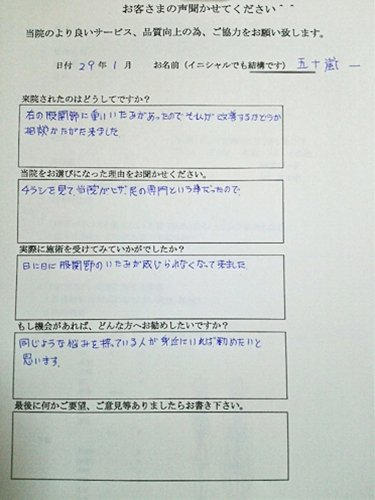 お客さまの声聞かせてください＾＾
当院のより良いサービス、品質向上の為、ご協力をお願い致します。
日付 29年 1月 お名前（イニシャルでも結構です） 五十嵐 一
来院されたのはどうしてですか？
右の股関節に重いいたみがあったのでそれが改善するかどうか
相談かたがた来ました
当院をお選びになった理由をお聞かせください。
チラシを見て、当院がヒザ、足の専門という事だったので
実際に施術を受けてみていかがでしたか？
日に日に股関節のいたみが感じられなくなって来ました
もし機会があれば、どんな方へお勧めしたいですか？
同じような悩みを持っている人が身近にいれば勧めたいと
思います。
最後に何かご要望、ご意見等ありましたらお書き下さい。